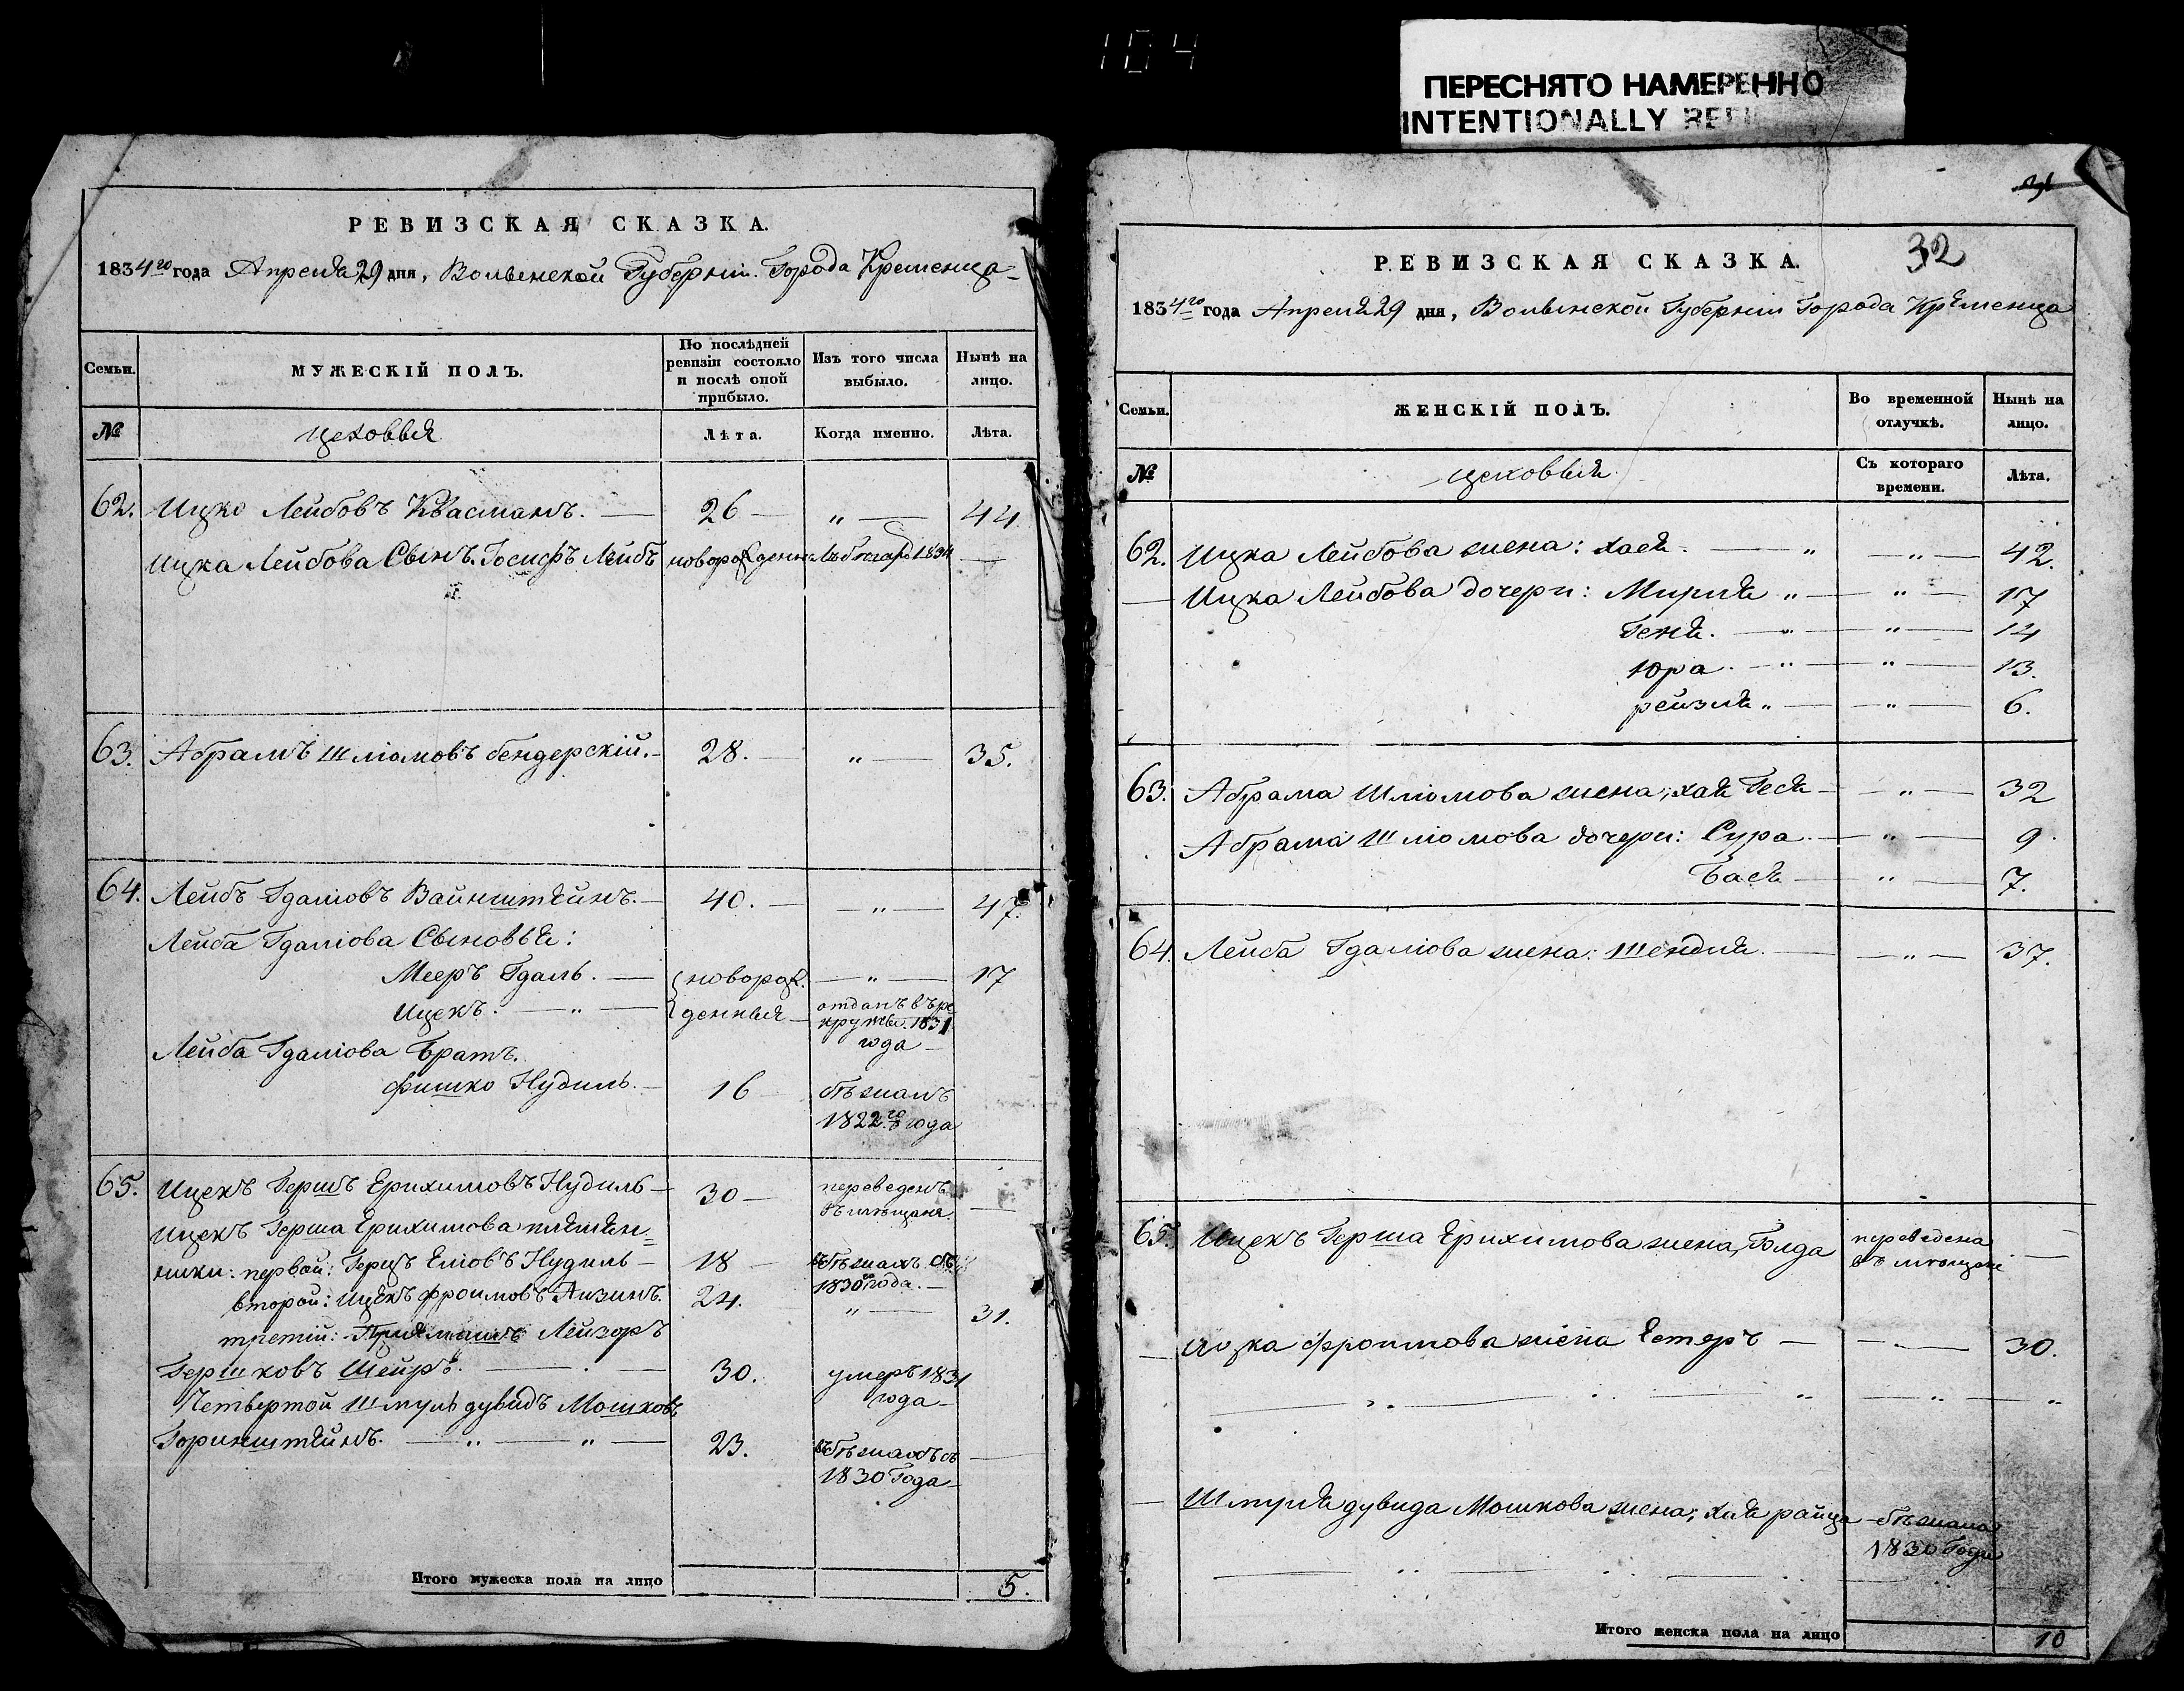 104
ПЕРЕСНЯТО НАМЕРЕННО
INTENTIONALLY
РЕВИЗСКАЯ СКАЗКА.
1834го года Апреля 29 дня, Волынской Губерніи. Города Кременца
Семьи.
МУЖЕСКІЙ ПОЛЪ.
По послѣдней ревизіи состояло и послѣ оной прибыло.
Изъ того числа выбыло.
Нынѣ на лицо.
№
цеховыя
Лѣта.
Когда именно.
Лѣта.
62. Ицко Лейбовъ Квасманъ. 26 „ 44
Ицка Лейбова Сынъ. Іосифъ Лейбъ новорожденн 1834
63. Абрамъ Шліомовъ бендерскій. 28. „ 35.
64. Лейбъ Гдаліовъ Вайнштейнъ. 40. „ 47.
Лейба Гдаліова Сыновья:
Мееръ Гдаль. новорож. „ 17
Ицекъ. „ денныя отданъ въ ре
круты. 1831
года
Лейба Гдаліова Братъ.
фишко Нудиль. 16 бѣжалъ
1822го года
65. Ицекъ Гершъ Ерихимовъ Нудиль 30 переведенъ
въ мѣщане
Ицекъ Герша Ерихимова племян=
ники: первой: Герцъ Еліовъ Нудиль 18 бѣжалъ
1830 года.
второй: Ицекъ фроимовъ Аизинъ. 24. „ 31.
третій: Лейзоръ
Гершковъ Шейръ. 30. умеръ 1831
года
Четвертой Шмуль дувидъ Мошковъ
Горинштейнъ. „ „ 23. бѣжалъ съ
1830 Года
Итого мужеска пола на лицо 5.
32
РЕВИЗСКАЯ СКАЗКА.
1834го года Апреля 29 дня, Волынской Губерніи Города Кременца
Семьи.
ЖЕНСКІЙ ПОЛЪ.
Во временной отлучкѣ.
Нынѣ на лицо.
№
цеховыя
Съ котораго времени.
Лѣта.
62. Ицка Лейбова жена: Хася. „ „ 42.
Ицка Лейбова дочери: Мирія „ „ 17
Геня. „ „ 14
Юра. „ „ 13.
рейзля „ „ 6.
63. Абрама Шліомова жена; хая Гися „ 32
Абрама Шліомова дочери: Сура „ 9.
Бася „ 7.
64. Лейба Гдаліова жена: Шендля. „ 37.
65. Ицекъ Герша Ерихимова жена, Голда переведена
въ мѣщане
Ицка фроимова жена Естеръ 30.
„ „ „ „ „
Шмуля дувида Мошкова жена; хая райца бѣжала
1830 Года
Итого женска пола на лицо 10